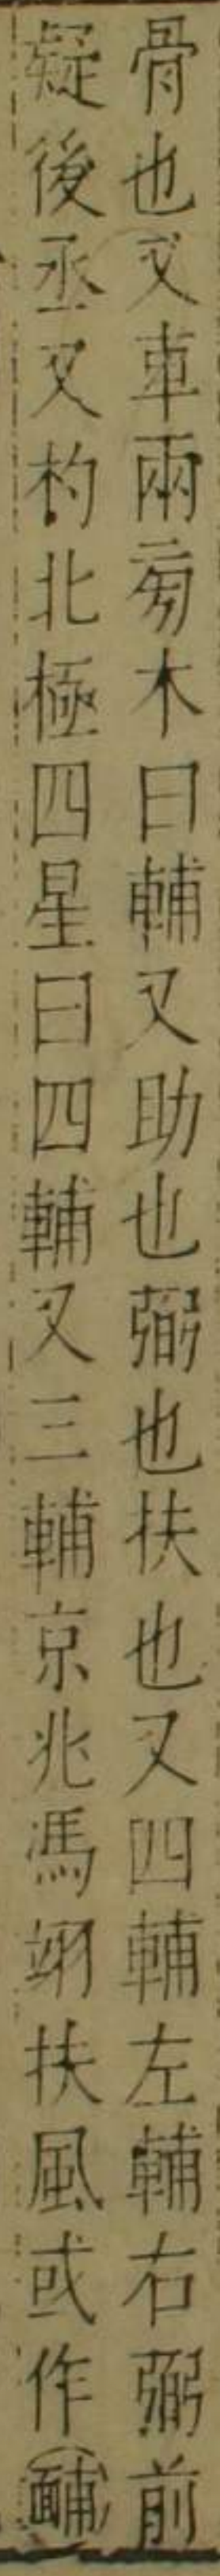 骨也又車兩旁木曰輔又助也弼也扶也又四輔左輔右弼前
疑後丞又杓北極四星曰四輔又三輔京兆馮翊扶風或作䩉